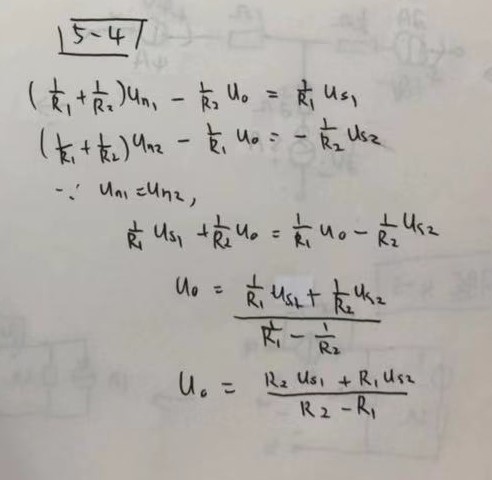 5-4
(1/R₁ + 1/R₂)Uₙ₁ - 1/R₂ U₀ = 1/R₁ Us₁
(1/R₁ + 1/R₂)Uₙ₂ - 1/R₁ U₀ = - 1/R₂ Us₂
∵ Uₙ₁ = Uₙ₂,
1/R₁ Us₁ + 1/R₂ U₀ = 1/R₁ U₀ - 1/R₂ Us₂
U₀ = (1/R₁ Us₁ + 1/R₂ Us₂) / (1/R₁ - 1/R₂)
U₀ = (R₂ Us₁ + R₁ Us₂) / (R₂ - R₁)